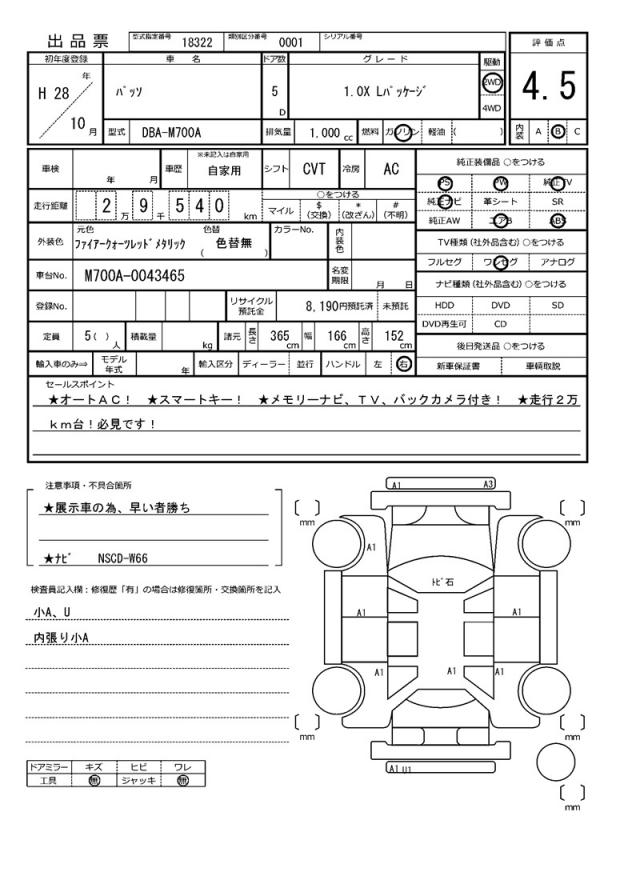 出品票 型式指定番号 18322 類別区分番号 0001 シリアル番号
初年度登録 車名 ドア数 グレード 駆動 評価点
H 28 年 10 月 パッソ 5 D 1.0X Lパッケージ 2WD 4WD 4.5
型式 DBA-M700A 排気量 1.000 cc 燃料 ガソリン 軽油 ( ) 内装 A B C
車検 年 月 車歴 ※未記入は自家用 自家用 シフト CVT 冷房 AC
純正装備品 ○をつける
PS PW 純正TV
純正ナビ 革シート SR
純正AW エアB ABS
走行距離 2 万 9 千 5 4 0 km
○をつける
マイル $ (交換) * (改ざん) # (不明)
外装色 元色 ファイアークォーツレッドメタリック 色替 ( 色替無 ) カラーNo. 内装色
TV種類(社外品含む)○をつける
フルセグ ワンセグ アナログ
車台No. M700A-0043465 名変期限 月 日
ナビ種類(社外品含む)○をつける
HDD DVD SD
DVD再生可 CD
登録No. リサイクル預託金 8,190円預託済 未預託
定員 5( ) 人 積載量 kg 諸元 長さ 365 cm 幅 166 cm 高さ 152 cm
後日発送品 ○をつける
新車保証書 車輌取説
輸入車のみ⇒ モデル年式 年 輸入区分 ディーラー 並行 ハンドル 左 右
セールスポイント
★オートAC! ★スマートキー! ★メモリーナビ、TV、バックカメラ付き! ★走行2万
km台!必見です!
注意事項・不具合箇所
★展示車の為、早い者勝ち
★ナビ NSCD-W66
検査員記入欄:修復歴「有」の場合は修復箇所・交換箇所を記入
小A、U
内張り小A
ドアミラー キズ ヒビ ワレ
工具 無 ジャッキ 無
A1 A3
[ ] mm
[ ] mm
A1
トビ石
A1 A1
A1 A1 A1
[ ] mm
[ ] mm
A1 U1
[ ] mm